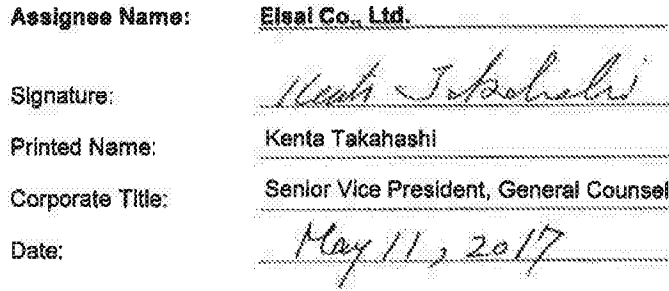 Assignee Name: Eisai Co., Ltd.
Signature: Kenta Takahashi
Printed Name: Kenta Takahashi
Corporate Title: Senior Vice President, General Counsel
Date: May 11, 2017